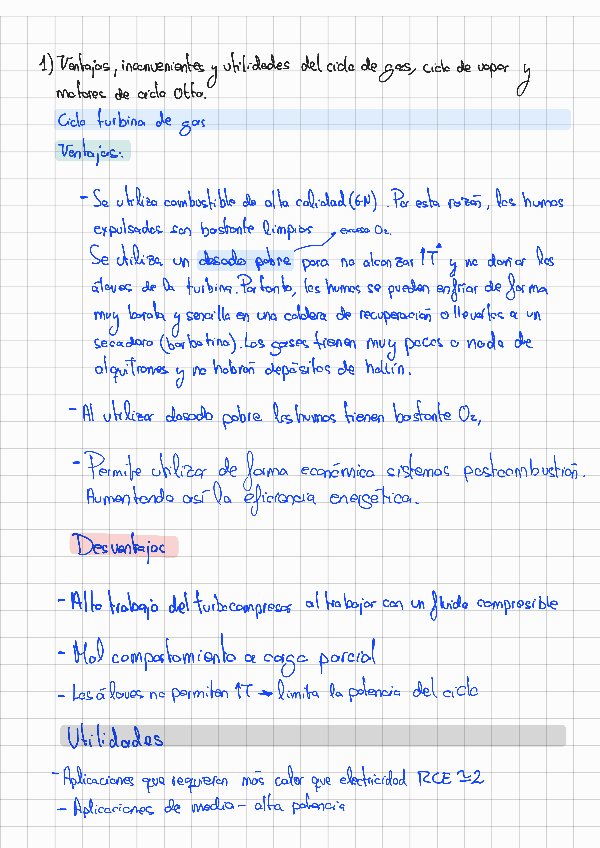 1) Ventajas, inconvenientes y utilidades del ciclo de gas, ciclo de vapor y
motores de ciclo Otto.
Ciclo turbina de gas
Ventajas:
- Se utiliza combustible de alta calidad (GN). Por esta razón, los humos
expulsados son bastante limpios → exceso O₂.
Se utiliza un dosado pobre para no alcanzar ↑Tª y no dañar los
álaves de la turbina. Por tanto, los humos se pueden enfriar de forma
muy barata y sencilla en una caldera de recuperación o llevarlos a un
secadero (barbotina). Los gases tienen muy pocos o nada de
alquitranes y no habrán depósitos de hollín.
- Al utilizar dosado pobre los humos tienen bastante O₂,
- Permite utilizar de forma económica sistemas postcombustión.
Aumentando así la eficiencia energética.
Desventajas
- Alto trabajo del turbocompresor al trabajar con un fluido compresible
- Mal comportamiento a carga parcial
- Los álaves no permiten ↑T → limita la potencia del ciclo
Utilidades
- Aplicaciones que requieren más calor que electricidad RCE ≃ 2
- Aplicaciones de media - alta potencia